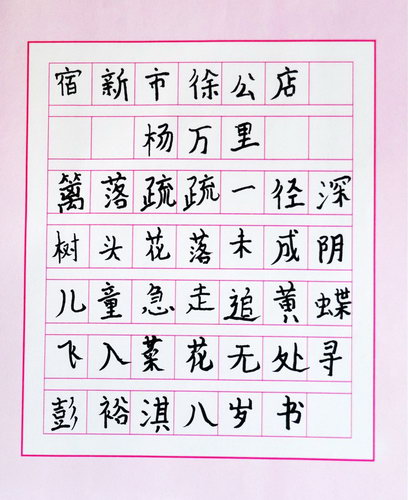 宿新市徐公店
杨万里
篱落疏疏一径深
树头花落未成阴
儿童急走追黄蝶
飞入菜花无处寻
彭裕淇八岁书